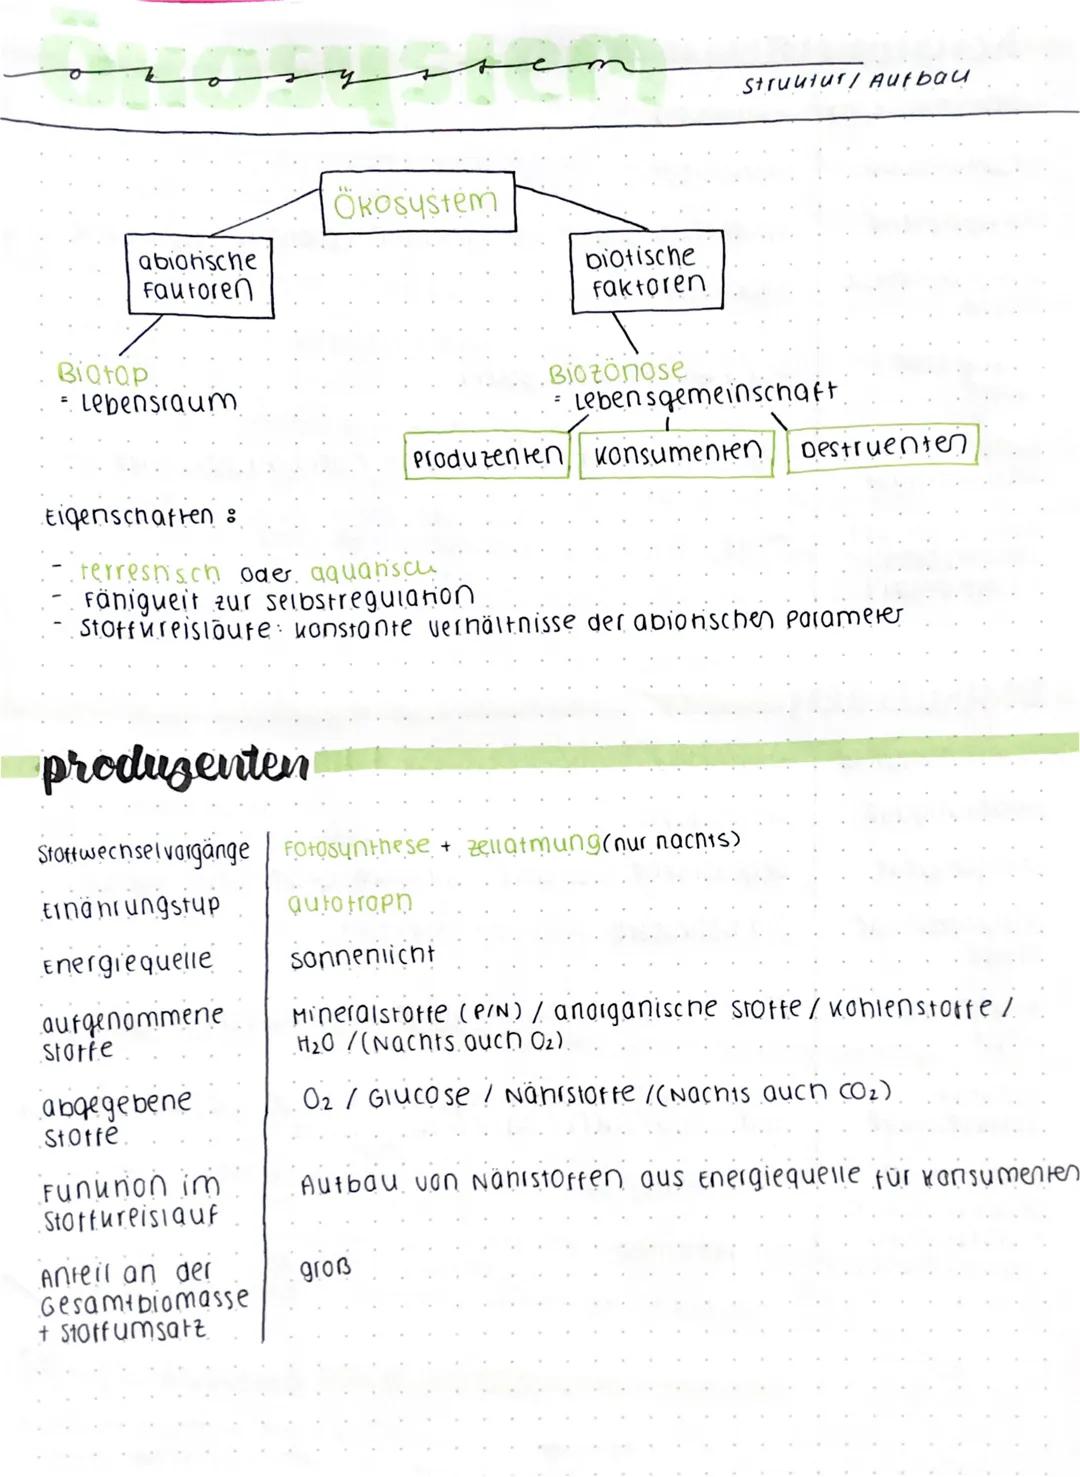 Ökosystem
ökosystem
Struktur / Aufbau
Ökosystem
abiotische
Faktoren
biotische
Faktoren
Biotop
= Lebensraum
Biozönose
= Lebensgemeinschaft
Produzenten
Konsumenten
Destruenten
Eigenschaften :
- terrestrisch oder aquatisch
- Fähigkeit zur Selbstregulation
- Stoffkreisläufe : konstante Verhältnisse der abiotischen Parameter
produzenten
Stoffwechselvorgänge
Fotosynthese + Zellatmung (nur nachts)
Ernährungstyp
autotroph
Energiequelle
Sonnenlicht
aufgenommene
Stoffe
Mineralstoffe (P/N) / anorganische Stoffe / Kohlenstoffe /
H₂O / (Nachts auch O₂)
abgegebene
Stoffe
O₂ / Glucose / Nährstoffe / (Nachts auch CO₂)
Funktion im
Stoffkreislauf
Aufbau von Nährstoffen aus Energiequelle für Konsumenten
Anteil an der
Gesamtbiomasse
+ Stoffumsatz
groß